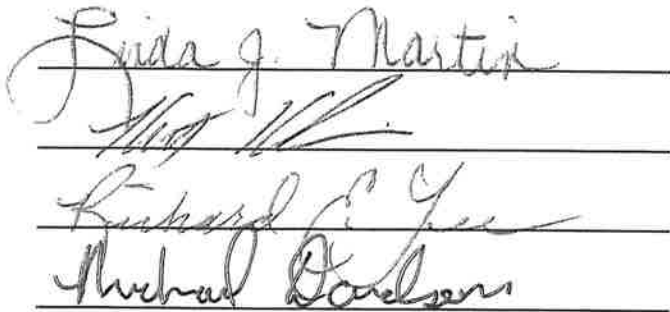 Linda J. Martin
Richard E. Lee
Michael Davidson